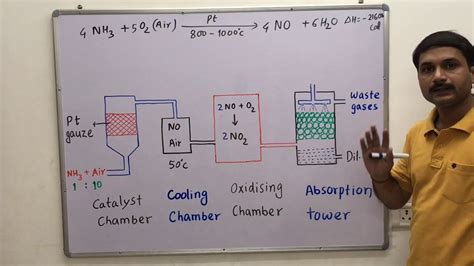 4 NH₃ + 5O₂ (Air) Pt 800 - 1000°C 4 NO + 6H₂O ΔH = - 21600 Cal
Pt gauze
NO
Air
50°C
2NO + O₂
↓
2NO₂
Waste gases
Dil.
NH₃ + Air
1 : 10
Catalyst Chamber
Cooling Chamber
Oxidising Chamber
Absorption tower